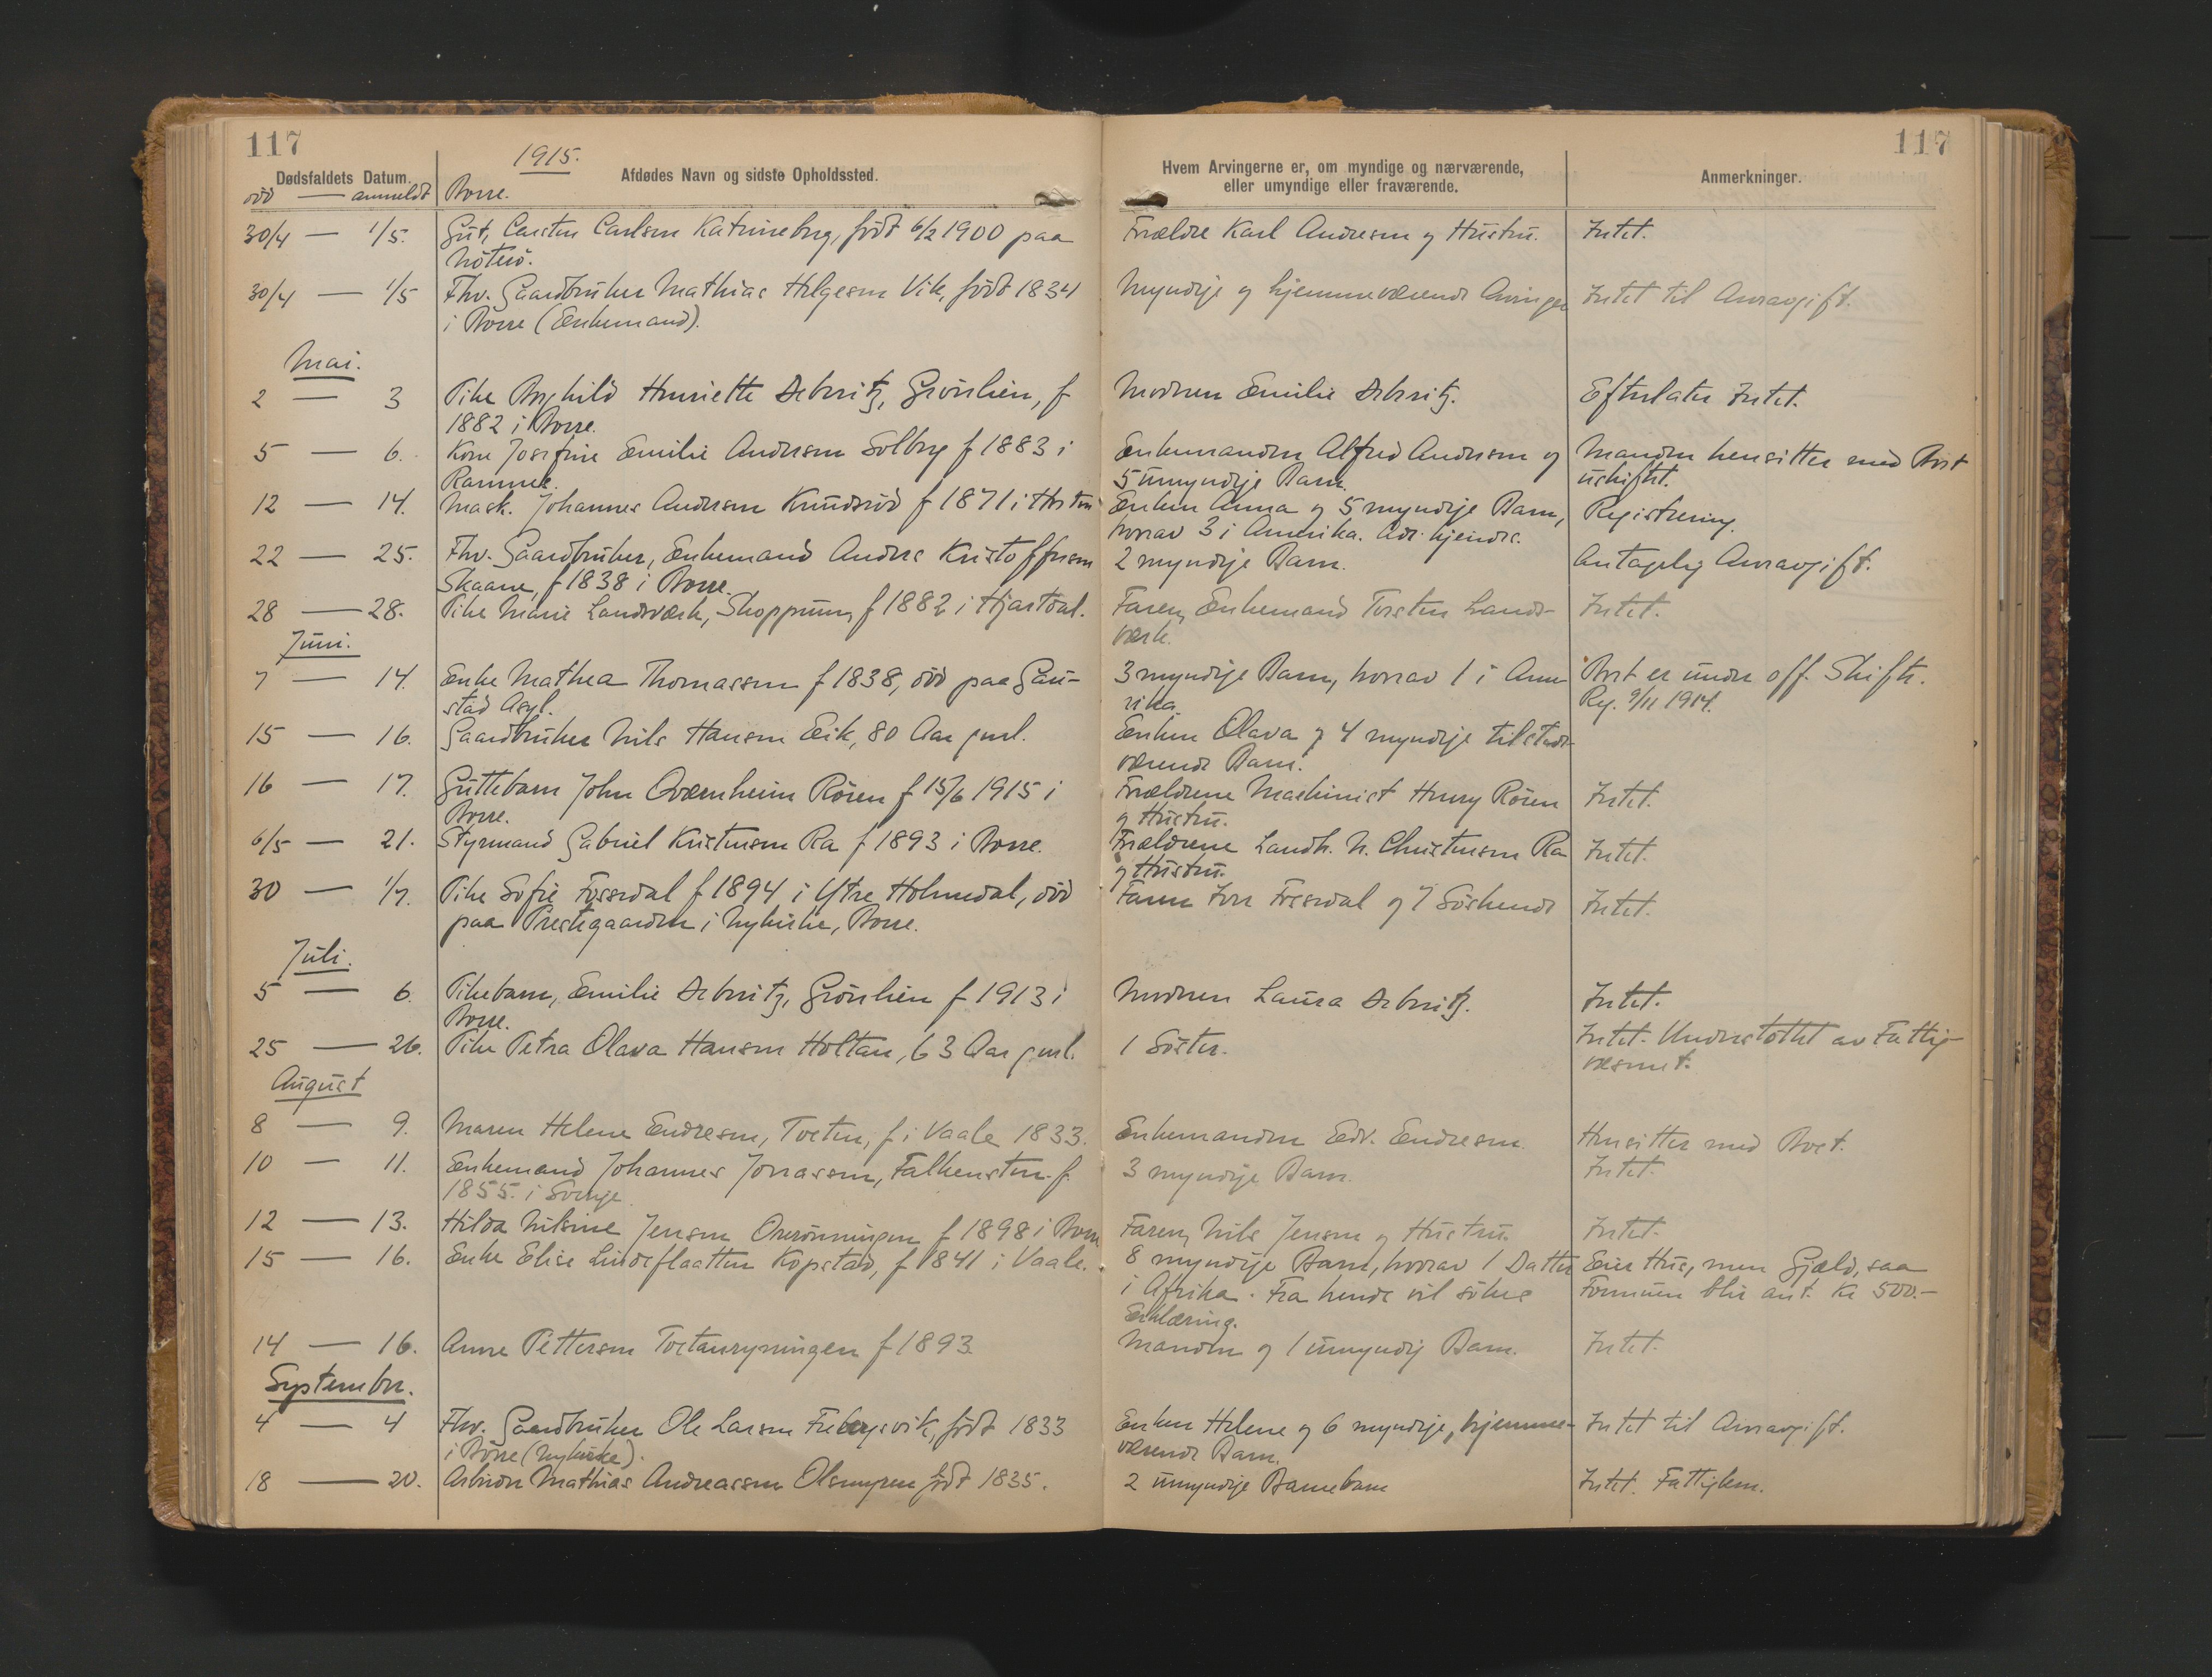 117
1915.
117
Dødsfaldets Datum.
Afdødes Navn og sidste Opholdssted.
Hvem Arvingerne er, om myndige og nærværende,
eller umyndige eller fraværende.
Anmerkninger.
død — anmeldt
Borre.
30/4 — 1/5. Gut, Carsten Carlsen Katrineborg, född 6/2 1900 paa Forældre Karl Andresen og Hustru. Intet.
Nøterø.
30/4 — 1/5 Fhv. Gaardbruker Mathias Helgesen Vik, født 1834 Myndige og hjemmeværende Arvinger Intet til Arveavgift.
i Borre (Enkemand).
Mai.
2 — 3 Pike Borghild Henriette Debesitz, Grönlien, f Moderen Emilie Debesitz. Efterlater Intet.
1882 i Borre.
5 — 6. Kone Josefine Emilie Andersen Solberg f 1883 i Enkemanden Alfred Andersen og Manden hensitter med Boet
Ramnes. 5 umyndige Barn. uskiftet.
12 — 14. Mask. Johannes Andersen Knudsrød f 1871 i Horten Enken Anna og 5 myndige Barn, Registrering.
hvorav 3 i Amerika. Adr. kjendes.
22 — 25. Fhv. Gaardbruker, Enkemand Anders Kristoffersen 2 myndige Barn. Antagelig Arveavgift.
Skaane, f 1838 i Borre.
28 — 28. Pike Marie Landsværk, Skoppum, f 1882 i Hjartdal. Faren, Enkemand Torsten Lands- Intet.
værk.
Juni.
7 — 14. Enke Mathea Thomassen f 1838, död paa Gau- 3 myndige Barn, hvorav 1 i Ame- Boet er under off. Skifte.
stad Asyl. rika. Reg. 9/11 1914.
15 — 16. Gaardbruker Nils Hansen Eik, 80 Aar gml. Enken Olava og 4 myndige tilstede-
værende Barn.
16 — 17. Guttebarn John Qværnheim Rören f 15/6 1915 i Forældrene Maskinist Henry Rören Intet.
Borre. og Hustru.
6/5 — 21. Styrmand Gabriel Kristensen Ra f 1893 i Borre. Forældrene Landh. N. Christensen Ra Intet.
og Hustru.
30 — 1/7. Pike Sofie Fossdal f 1894 i Ytre Holmedal, död Faren Fossdal og 7 Söskende Intet.
paa Prestegaarden i Nykirke, Borre.
Juli.
5 — 6. Pikebarn, Emilie Debesitz, Grönlien f 1913 i Moderen Laura Debesitz. Intet.
Borre.
25 — 26. Pike Petra Olava Hansen Holtan, 63 Aar gml. 1 Söster. Intet. Understöttet av Fattig-
væsenet.
August
8 — 9. Maren Helene Endresen, Tveten, f i Vaale 1833. Enkemanden Edv. Endresen. Hensitter med Boet.
10 — 11. Enkemand Johannes Jonassen, Falkensten f. 3 myndige Barn. Intet.
1855. i Sverige.
12 — 13. Hilda Nilsine Jensen f 1898 i Borre Faren, Nils Jensen og Hustru. Intet.
15 — 16. Enke Elise Lindeflaatten Kopstad, f 1841 i Vaale. 8 myndige Barn, hvorav 1 Datter Eier Hus, men Gjæld, saa
i Afrika. Fra hende vil sökes Formuen blir ant. Kr 500.-
Erklæring.
14 — 16. Anne Pettersen f 1893. Manden og 1 umyndig Barn. Intet.
September.
4 — 4 Fhv. Gaardbruker Ole Larsen født 1833 Enken Helene og 6 myndige, hjemme- Intet til Arveavgift.
i Borre (Nykirke). værende Barn.
18 — 20. Arbeider Mathias Andreassen Olsmyren født 1835. 2 umyndige Barnebarn Intet. Fattiglem.